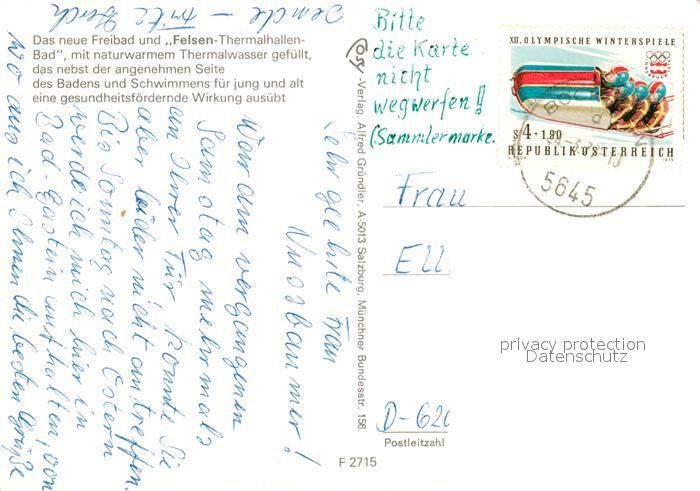 Das neue Freibad und „Felsen-Thermalhallen-
Bad", mit naturwarmem Thermalwasser gefüllt,
das nebst der angenehmen Seite
des Badens und Schwimmens für jung und alt
eine gesundheitsfördernde Wirkung ausübt
Sehr geehrte Frau
Nussbaumer!
War am vergangenen
Samstag mehrmals
an Ihrer Tür konnte Sie
aber leider nicht antreffen.
Bis Sonntag nach Ostern
werde ich mich hier in
Bad-Gastein aufhalten, von
wo aus ich Ihnen die besten Grüße
Fritz
Cosy Verlag Alfred Gründler, A-5013 Salzburg, Münchner Bundesstr. 156
F 2715
Bitte
die Karte
nicht
wegwerfen!!
(Sammlermarke.
XII. OLYMPISCHE WINTERSPIELE
S 4 + 1,90
REPUBLIK ÖSTERREICH
1975
5645
Frau
Ell
D-620
Postleitzahl
privacy protection
Datenschutz